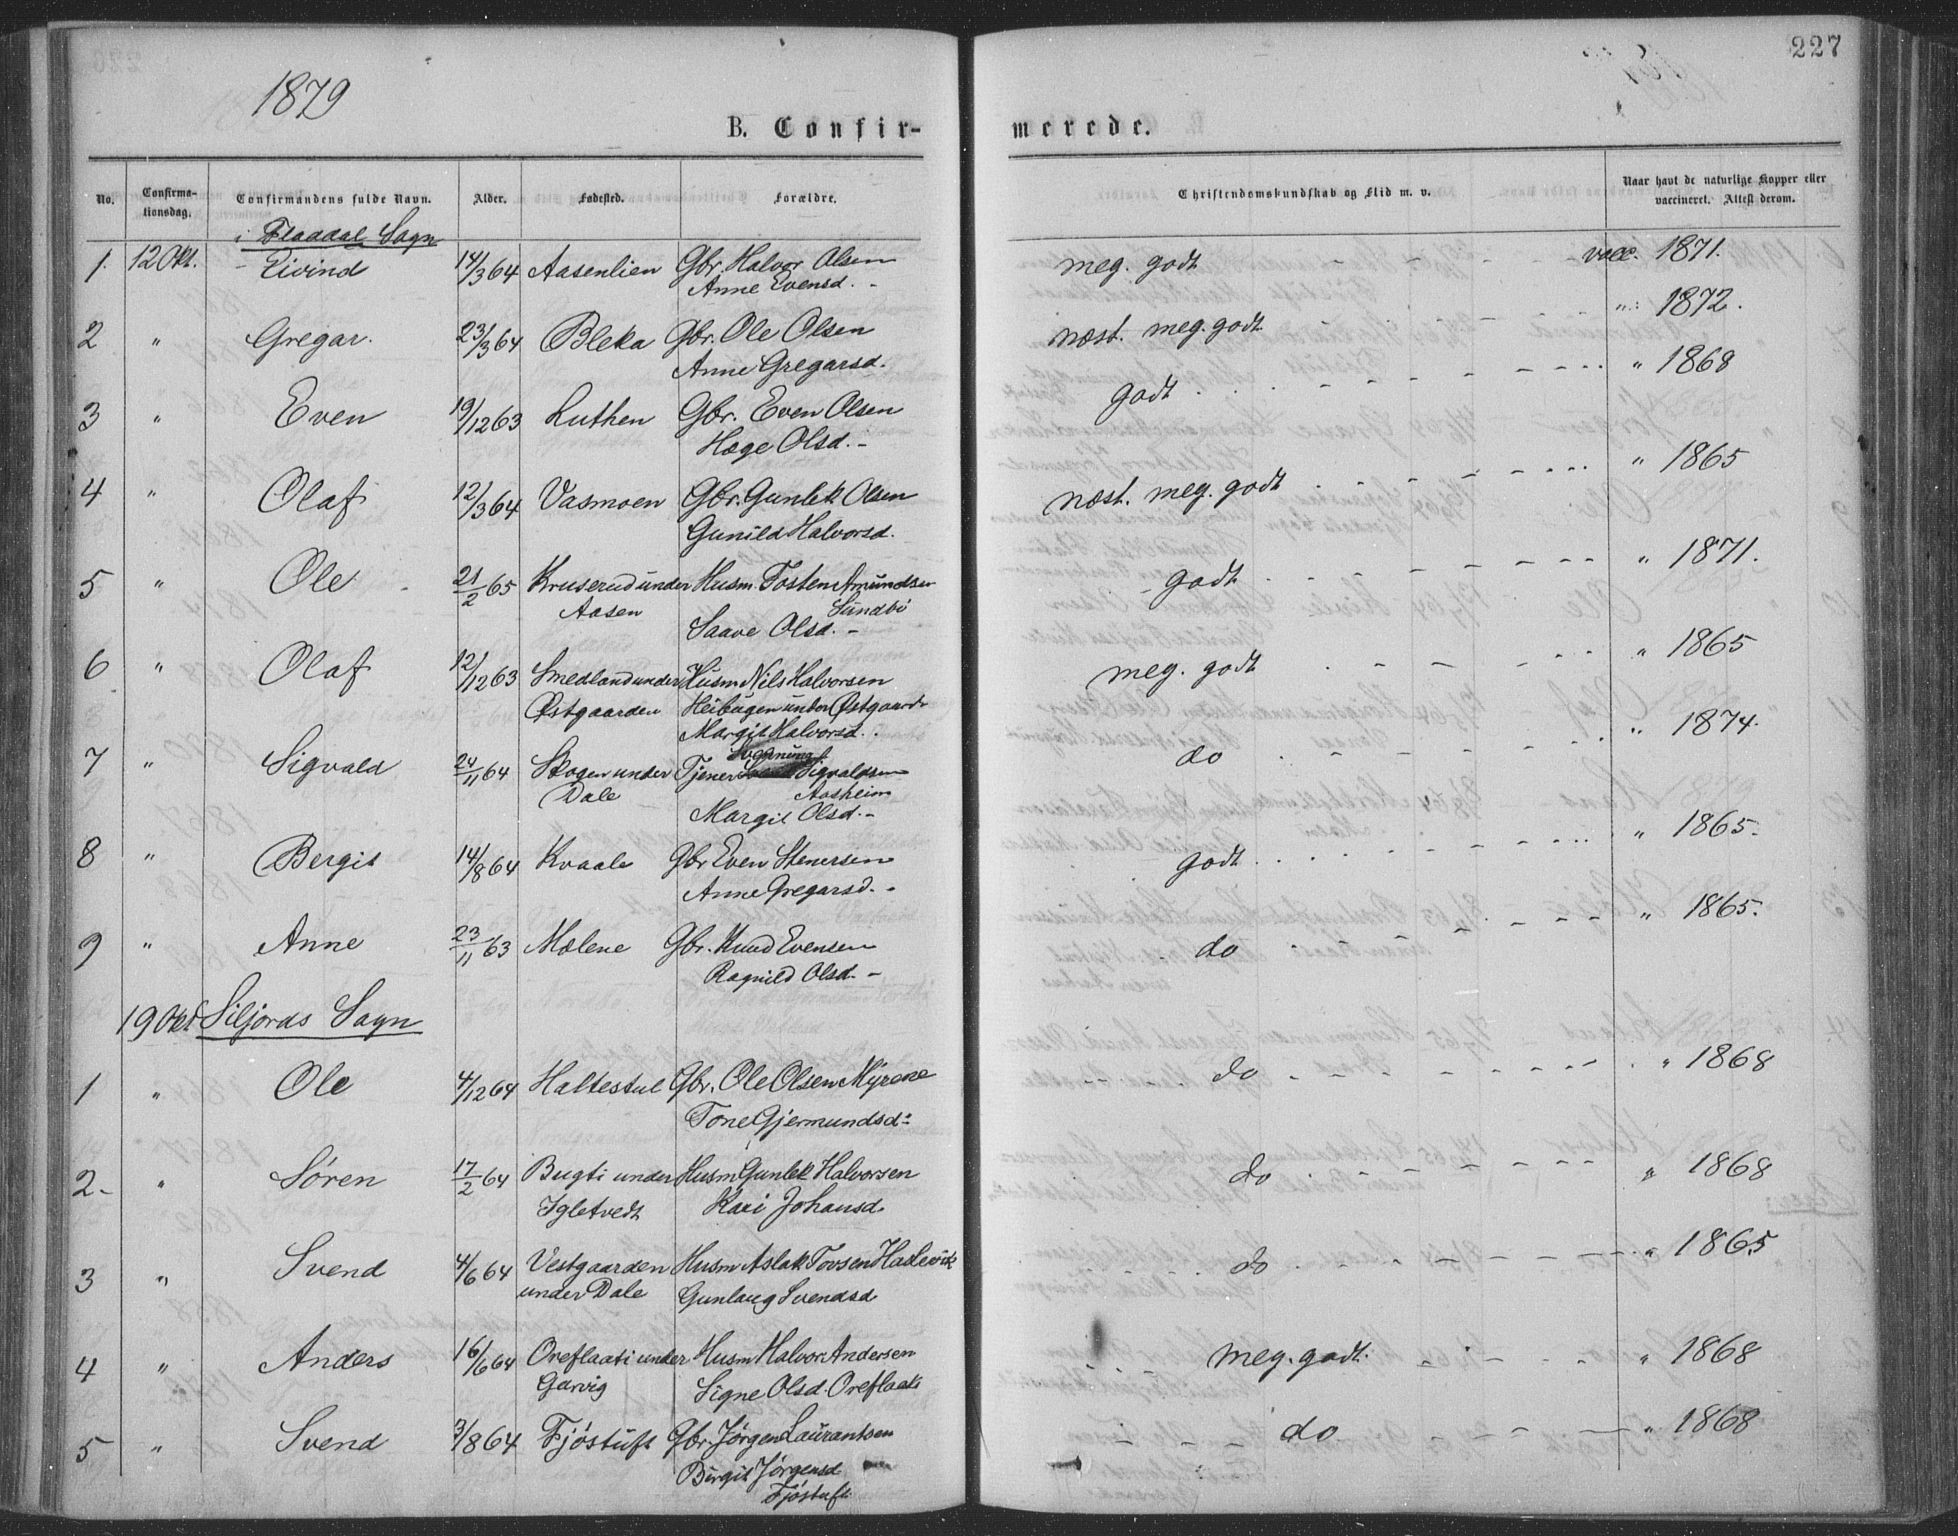 227
1879
B. Confir-
merede.
No.
Confirma-
tionsdag.
Confirmandens fulde Navn.
Alder.
Fødested.
Forældre.
Christendomskundskab og Flid m. v.
Naar havt de naturlige Kopper eller
vaccineret. Attest derom.
i Flaadal Sogn
1. 12 Okt. Eivind 14/3 64 Aasenlien Gbr. Halvor Olsen meg. godt vacc. 1871.
Anne Evensd.
2 " Gregar. 23/3 64 Bleka Gbr. Ole Olsen næst. meg. godt " 1872.
Anne Gregarsd.
3 " Even 19/12 63 Luthen Gbr. Even Olsen godt " 1868
Hæge Olsd.
4 " Olaf 12/3 64 Vasmoen Gbr. Gunlek Olsen næst. meg. godt " 1865
Gunild Halvorsd.
5 " Ole 21/2 65 Kruserud under Husm. Tosten Amundsen godt " 1871.
Aasen Sundbö
Saave Olsd.
6 " Olaf 12/12 63 Smedland under Husm Nils Halvorsen meg. godt " 1865
Østgaarden Heibugen under Østgaard
Margit Halvorsd.
7 " Sigvald 24/11 64 Skogen under Tjener Sigvaldsen do " 1874.
Dale Aasheim
Margit Olsd.
8 " Bergit 14/8 64 Kvaale Gbr Even Stenersen godt " 1865.
Anne Gregarsd.
9 " Anne 23/11 63 Mælene Gbr. Knud Evensen do " 1865.
Ragnild Olsd.
19 Okt Siljords Sogn
1 " Ole 4/12 64 Haltestul Gbr. Ole Olsen Myrene do " 1868
Tone Gjermundsd.
2 " Sören 17/2 64 Bugti under Husm Gunlek Halvorsen do " 1868
Igletvedt Kari Johansd.
3 " Svend 4/6 64 Vestgaarden Husm Aslak Tovsen Hadevik do " 1865
under Dale Gunlaug Svendsd
4 " Anders 16/6 64 Oreflaati under Husm Halvor Andersen meg. godt. " 1868
Garvig Signe Olsd. Oreflaati
5 " Svend 3/8 64 Fjöstuft Gbr. Jörgen Laurantsen do " 1868
Birgit Jörgensd
Fjöstuft